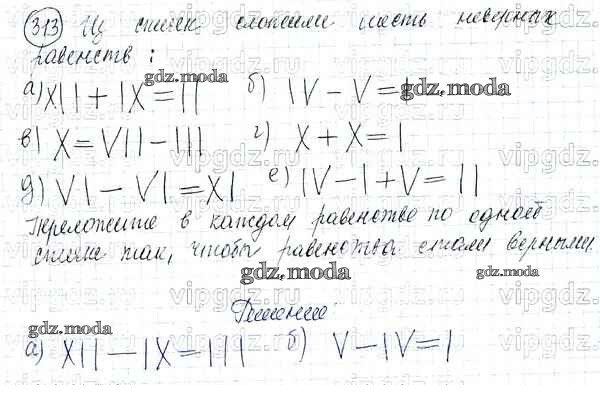 313 Из спичек сложили шесть неверных
равенств:
а) XII + IX = II б) IV - V = I
в) X = VII - III г) X + X = I
д) VI - VI = XI е) IV - I + V = II
Переложите в каждом равенстве по одной
спичке так, чтобы равенства стали верными.
Решение
а) XII - IX = III б) V - IV = I
gdz.moda
gdz.moda
gdz.moda
gdz.moda
gdz.moda
gdz.moda
vipgdz.ru